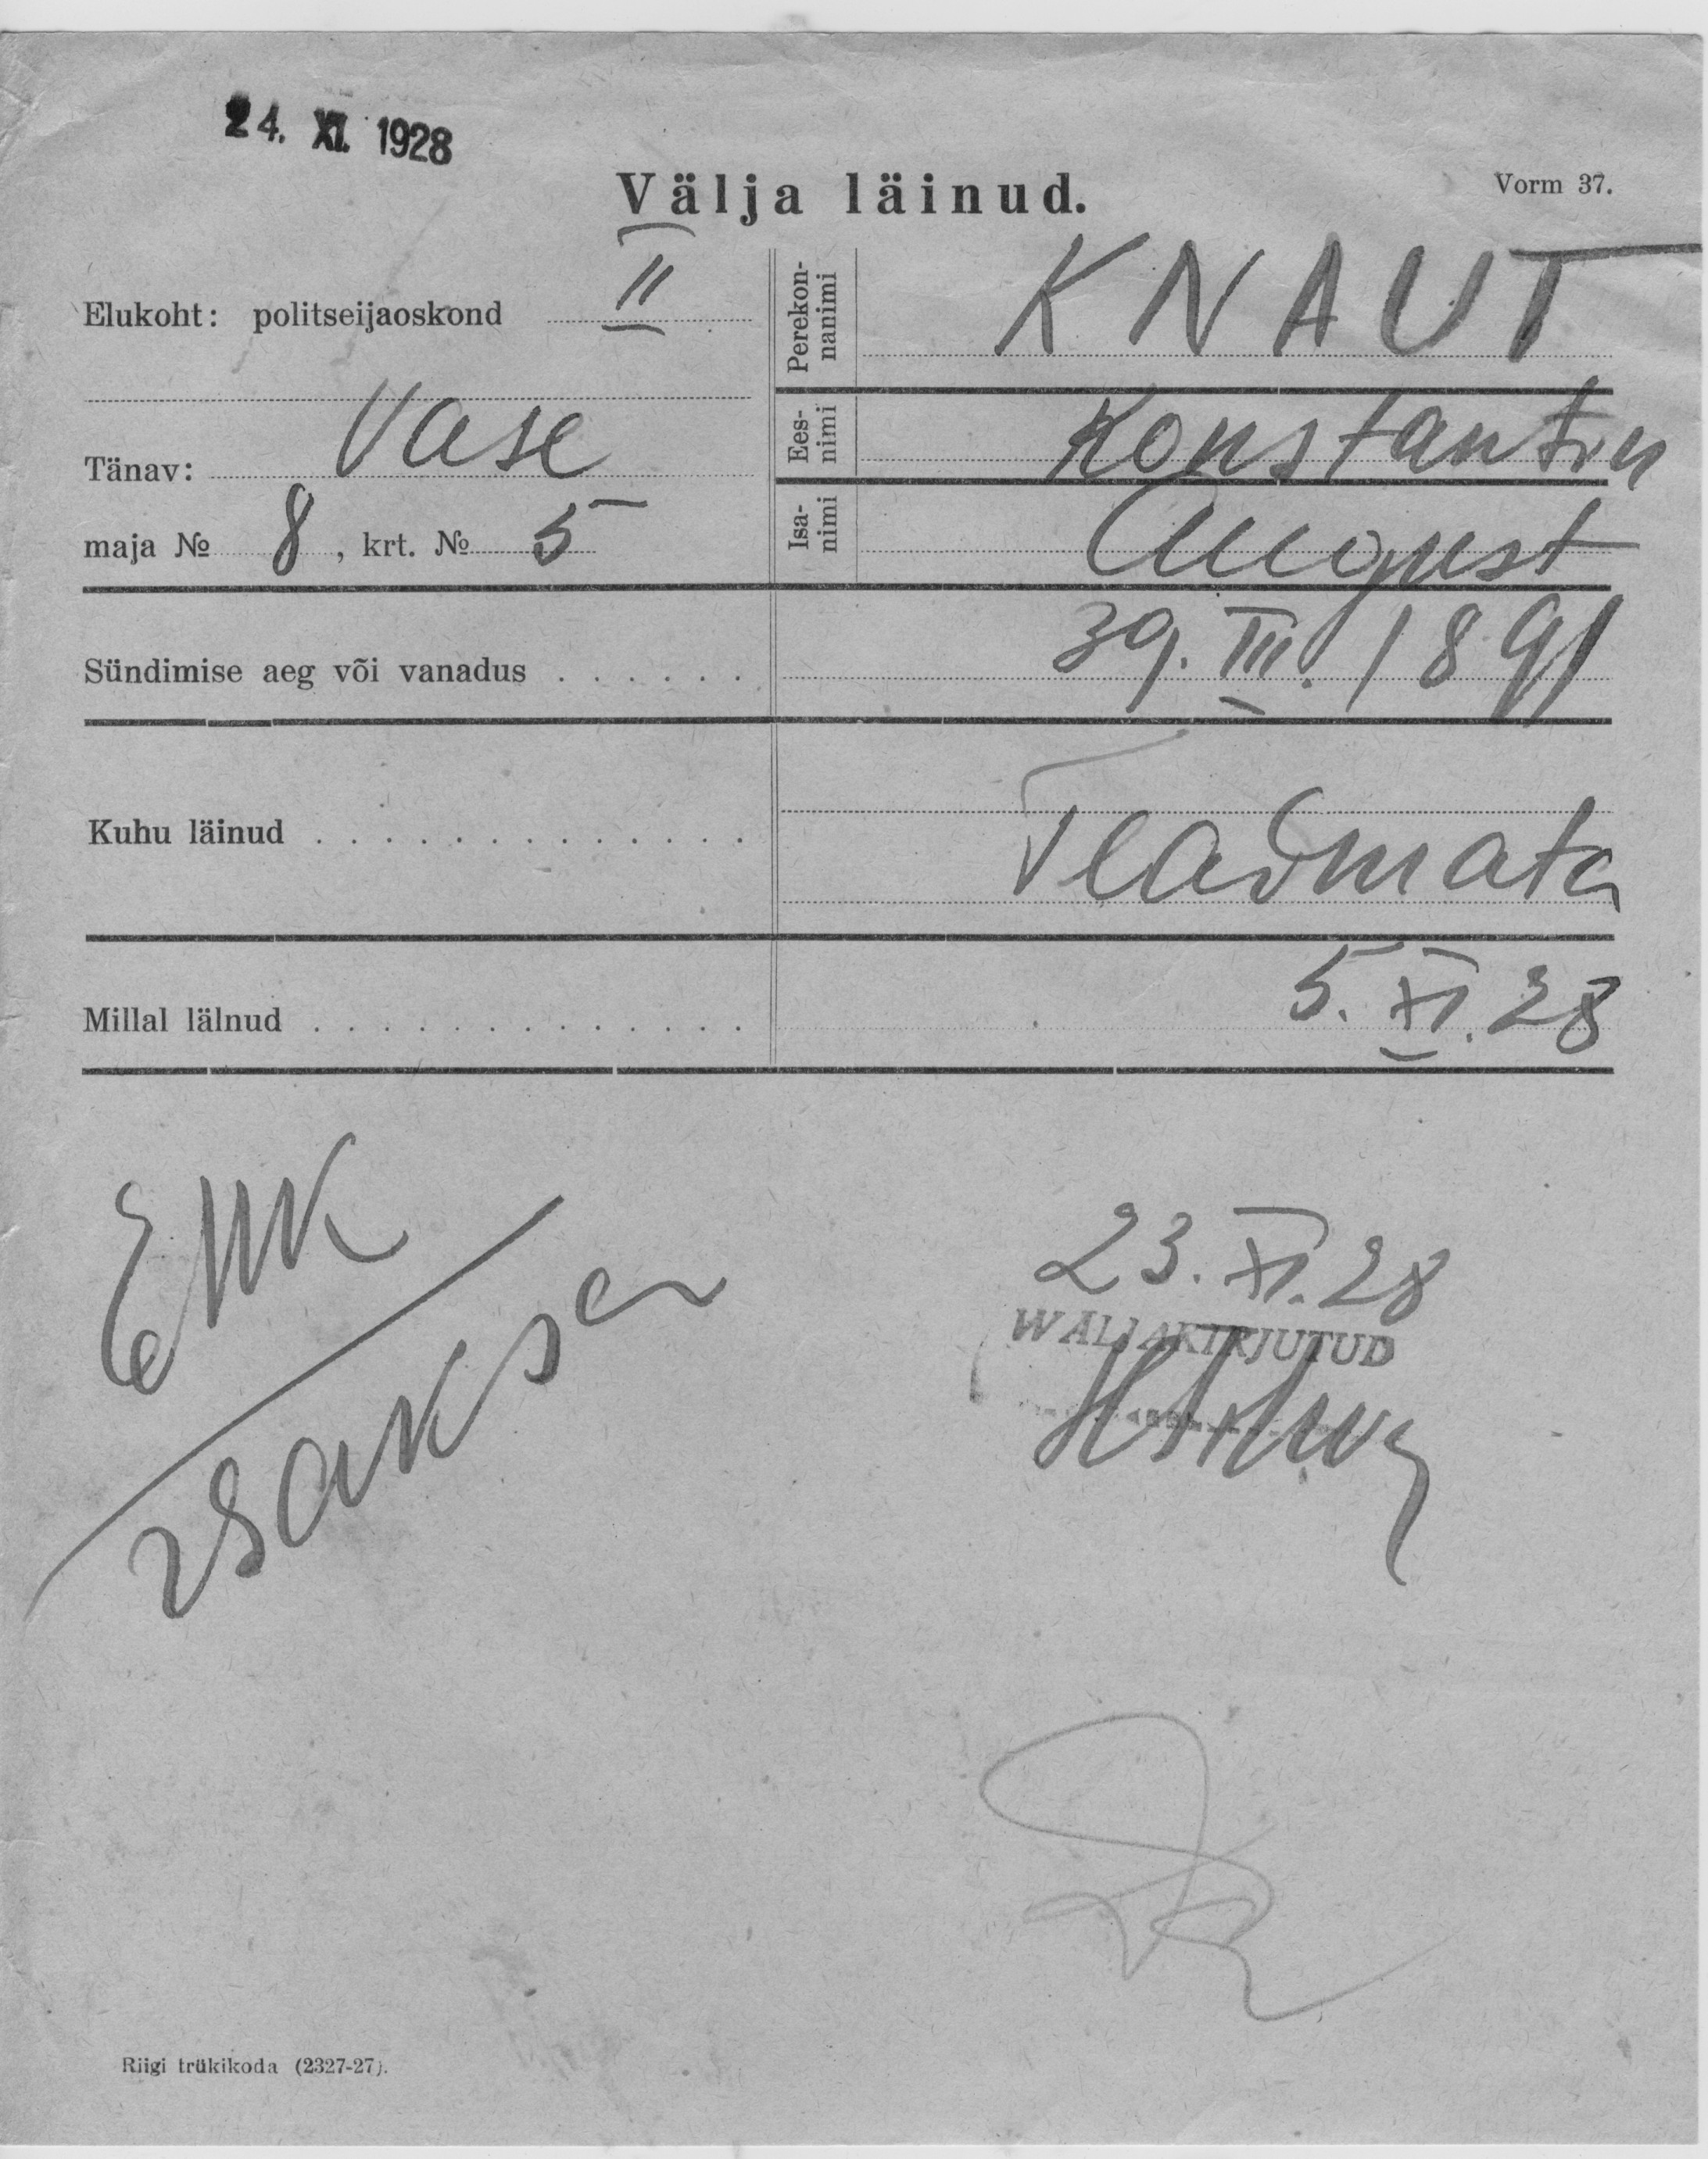 24. XI. 1928
Välja läinud.
Vorm 37.
Elukoht: politseijaoskond II
Tänav: Vase
maja № 8, krt. № 5
Perekon-
nanimi
KNAUT
Ees-
nimi
Konstantin
Isa-
nimi
August
Sündimise aeg või vanadus . . . . . . 39. III. 1891
Kuhu läinud . . . . . . . . . . . . . Teadmata
Millal lälnud . . . . . . . . . . . . . 5. XI. 28
23. XI. 28
WALJAKIRJUTUD
Riigi trükikoda (2327-27).